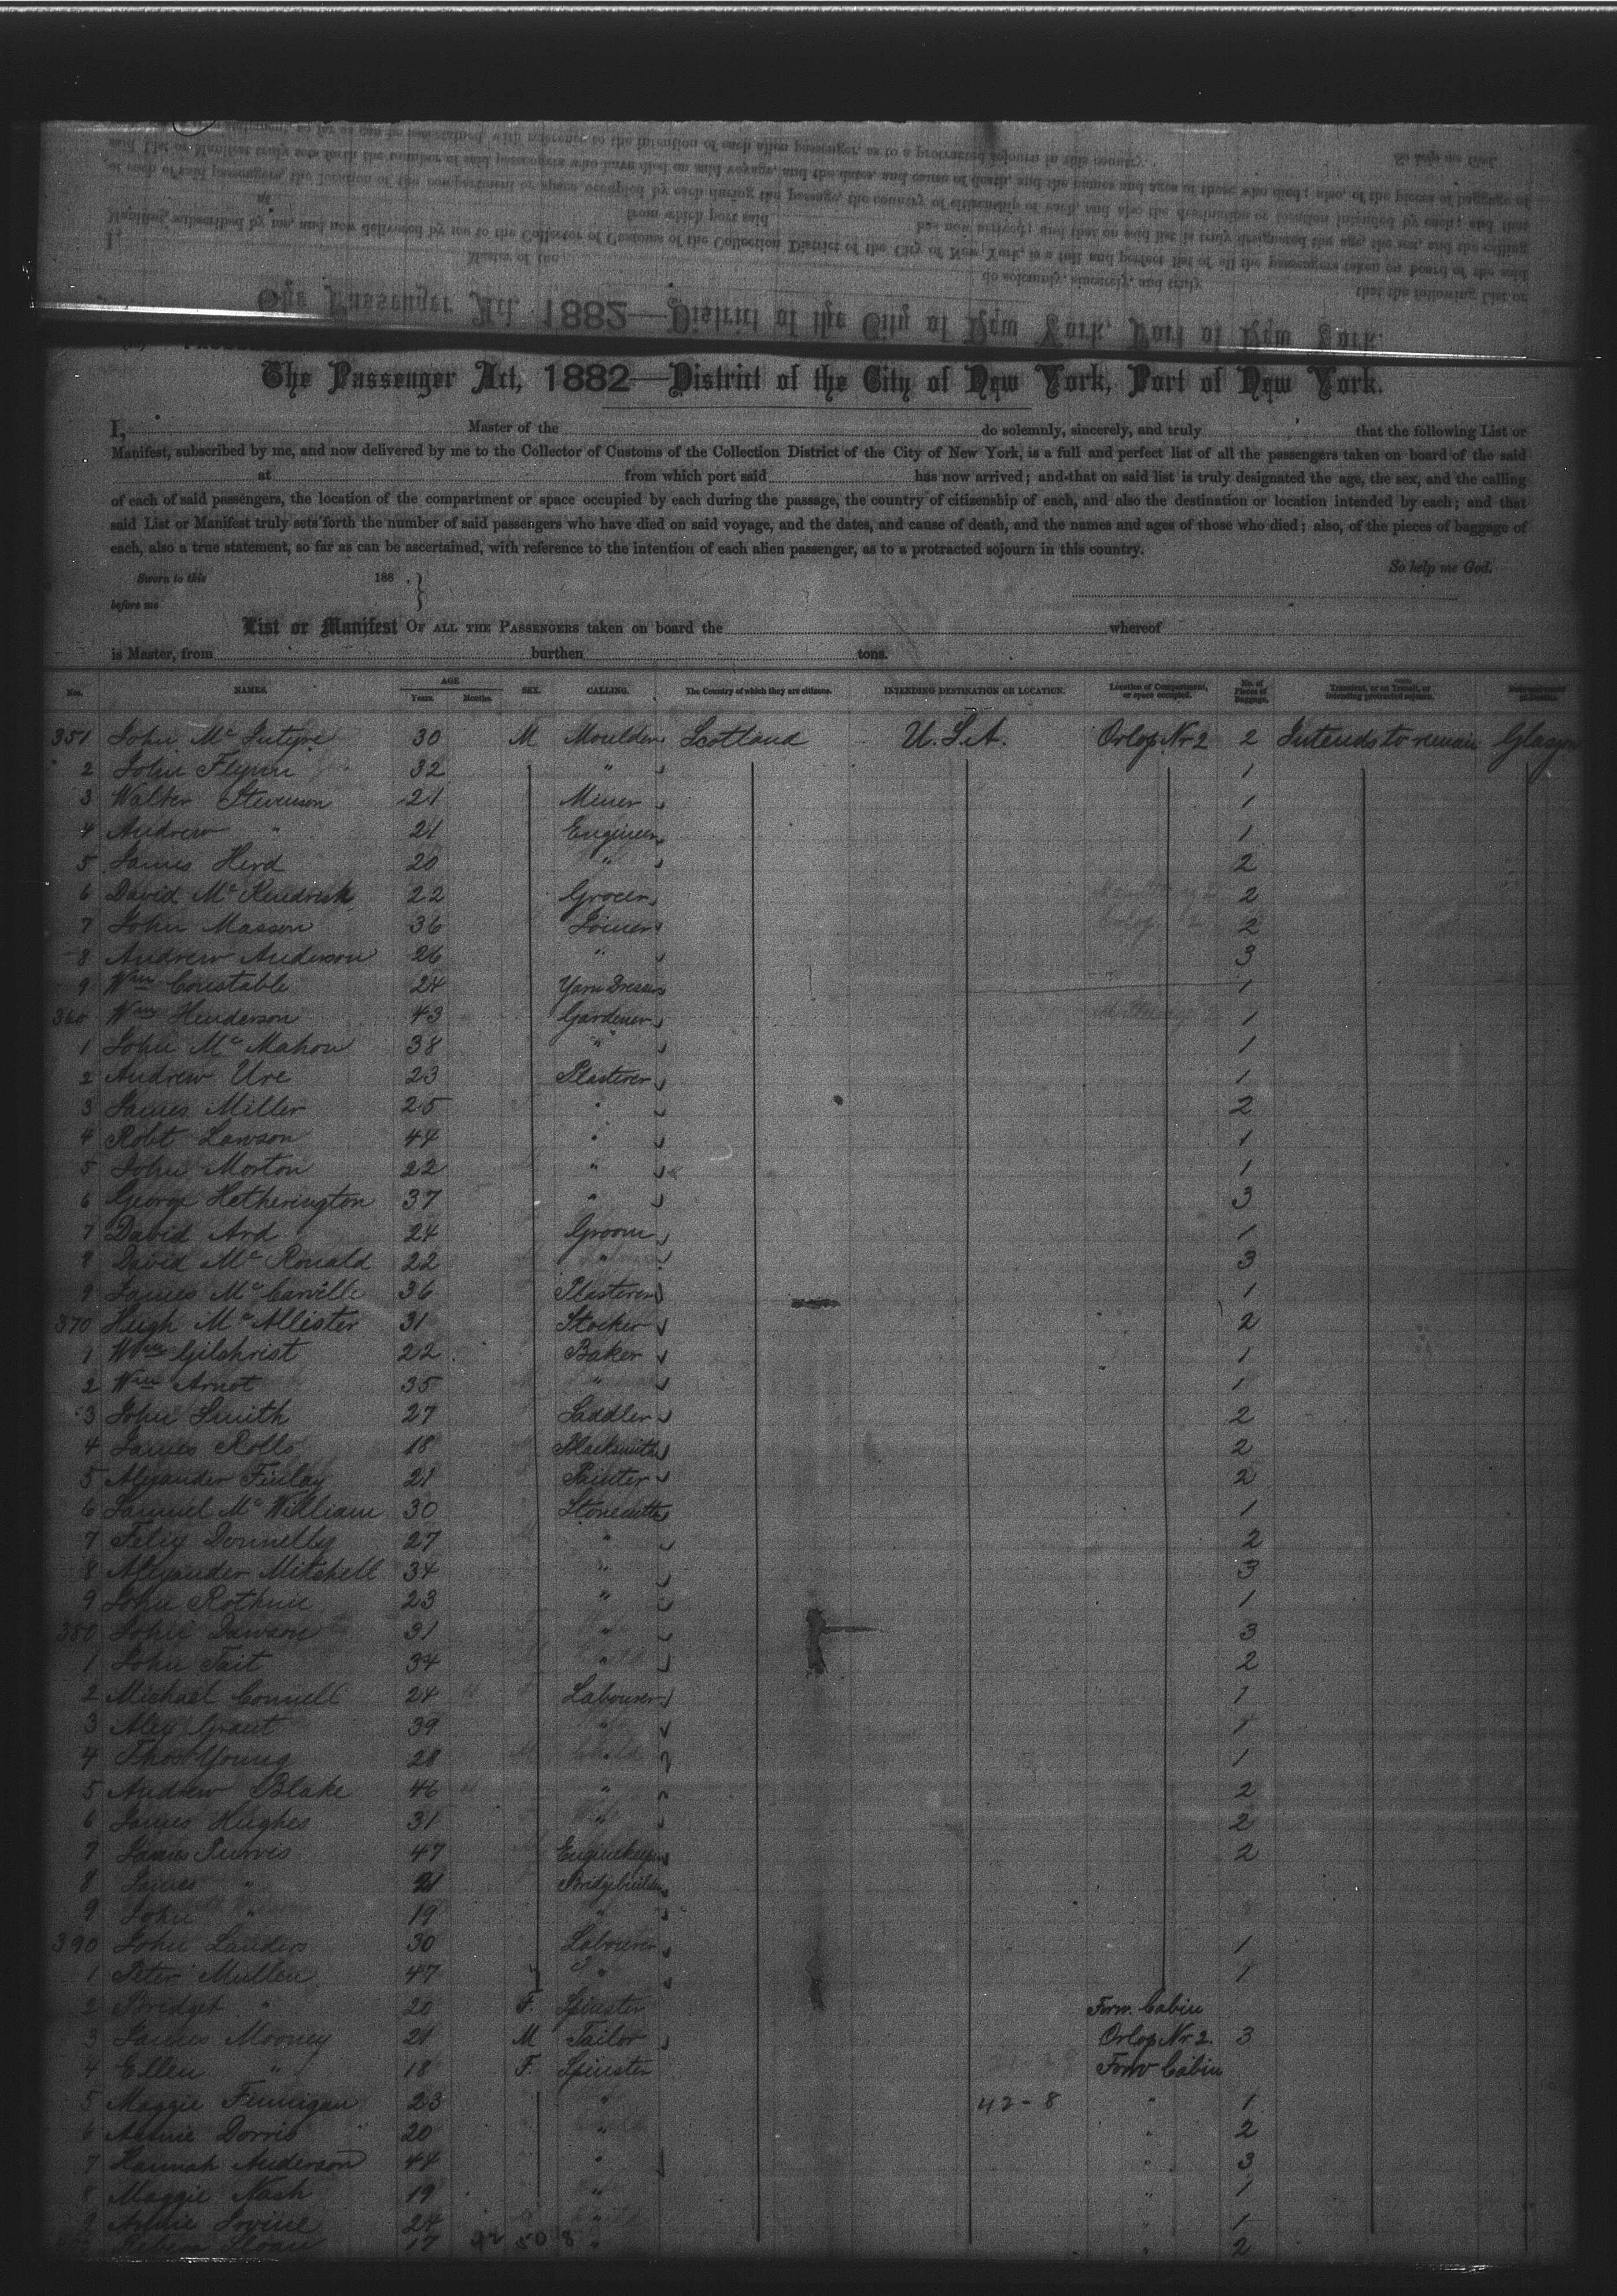 The Passenger Act, 1882—District of the City of New York, Port of New York.
I, Master of the do solemnly, sincerely, and truly that the following List or
Manifest, subscribed by me, and now delivered by me to the Collector of Customs of the Collection District of the City of New York, is a full and perfect list of all the passengers taken on board of the said
at from which port said has now arrived; and that on said list is truly designated the age, the sex, and the calling
of each of said passengers, the location of the compartment or space occupied by each during the passage, the country of citizenship of each, and also the destination or location intended by each; and that
said List or Manifest truly sets forth the number of said passengers who have died on said voyage, and the dates, and cause of death, and the names and ages of those who died; also, of the pieces of baggage of
each, also a true statement, so far as can be ascertained, with reference to the intention of each alien passenger, as to a protracted sojourn in this country.
So help me God.
Sworn to this 188
before me
List or Manifest OF ALL THE PASSENGERS taken on board the whereof
is Master, from burthen tons.
Nos. NAMES. AGE Years. Months. SEX. CALLING. The Country of which they are citizens. INTENDING DESTINATION OR LOCATION. Location of Compartment, or space occupied. No. of Pieces of Baggage. Transient, or in Transit, or intending protracted sojourn.
351 John Mc Intyre 30 M Moulder Scotland U.S.A. Orlop Nr 2 2 Intends to remain Glasgow
2 John Flynn 32 " 1
3 Walter Stevenson 21 Miner 1
4 Andrew " 21 Engineer 1
5 James Herd 20 " 2
6 David Mc Kendrick 22 Grocer 2
7 John Masson 36 Joiner 2
8 Andrew Anderson 26 " 3
9 Wm Constable 24 Yarn Dresser 1
360 Wm Henderson 43 Gardener 1
1 John Mc Mahon 38 " 1
2 Andrew Ure 23 Plasterer 1
3 James Miller 25 " 2
4 Robt Lawson 44 " 1
5 John Morton 22 " 1
6 George Hetherington 37 " 3
7 David Ard 24 Groom 1
8 David Mc Ronald 22 " 3
9 James Mc Carville 36 Plasterer 1
370 Hugh Mc Allister 31 Stoker 2
1 Wm Gilchrist 22 Baker 1
2 Wm Arnot 35 " 1
3 John Smith 27 Saddler 2
4 James Rolls 18 Blacksmith 2
5 Alexander Finlay 21 Painter 2
6 Samuel Mc William 30 Stonecutter 1
7 Felix Donnelly 27 " 2
8 Alexander Mitchell 34 " 3
9 John Rothnie 23 " 1
380 John Dawson 31 " 3
1 John Tait 34 " 2
2 Michael Connell 24 Labourer 1
3 Alex Grant 39 " 1
4 Thos Young 28 " 1
5 Andrew Blake 46 " 2
6 James Hughes 31 " 2
7 James Purvis 47 Enginekeeper 2
8 James " 21 Bridgebuilder
9 John " 19 "
390 John Landers 30 Labourer 1
1 Peter Mullen 47 " 1
2 Bridget " 20 F. Spinster Forw. Cabin
3 James Mooney 21 M Tailor Orlop Nr 2. 3
4 Ellen " 18 F. Spinster Forw Cabin
5 Maggie Finnigan 23 " 42-8 " 1
6 Annie Dorris 20 " " 2
7 Hannah Anderson 44 " " 3
8 Maggie Nash 19 " " 1
9 Annie Irvine 24 " " 1
Sloan 17 " " 2